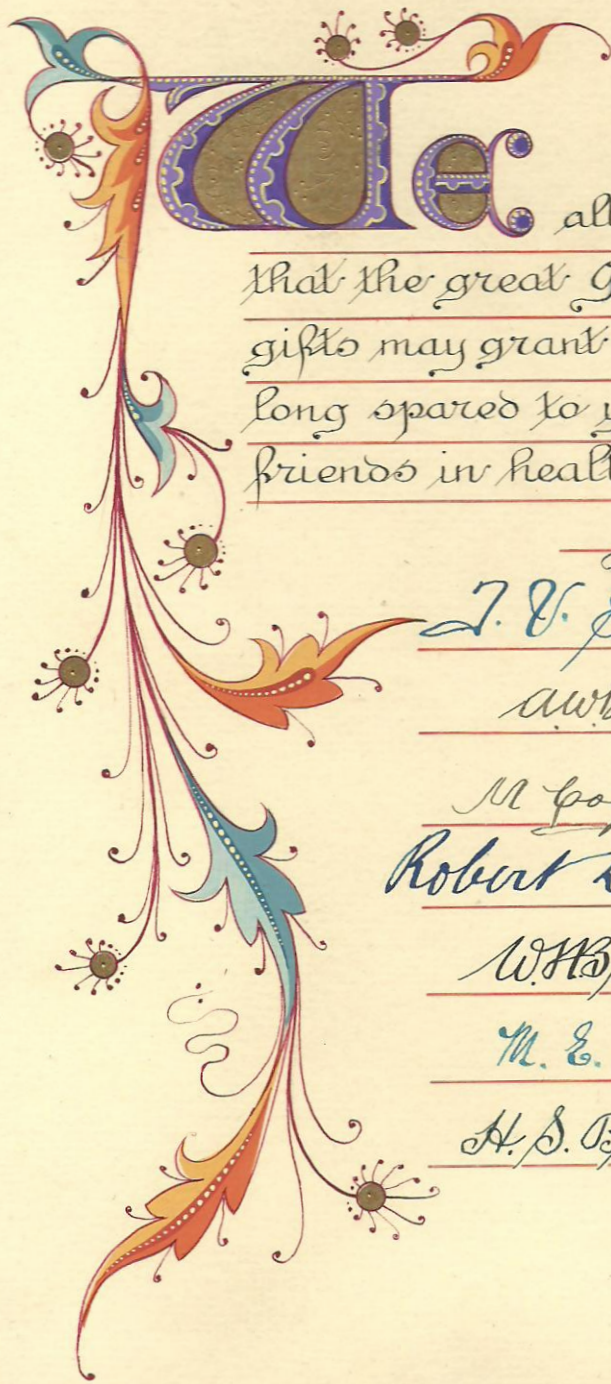 We all
that the great G
gifts may grant
long spared to y
friends in healt
J. V.
A.W.
M Co
Robert
W.H.B
M. E.
H. S. B